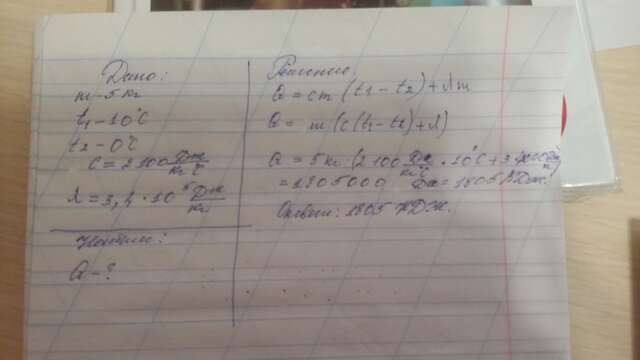 Дано:
m - 5 кг
t1 - 10°C
t2 - 0°C
C = 2100 Дж/кг°C
λ = 3,4 · 10^5 Дж/кг
Найти:
Q - ?
Решение:
Q = cm (t1 - t2) + λm
Q = m (c(t1 - t2) + λ)
Q = 5 кг · (2100 Дж/кг°C · 10°C + 3,4
= 1805000 Дж = 1805 кДж.
Ответ: 1805 кДж.